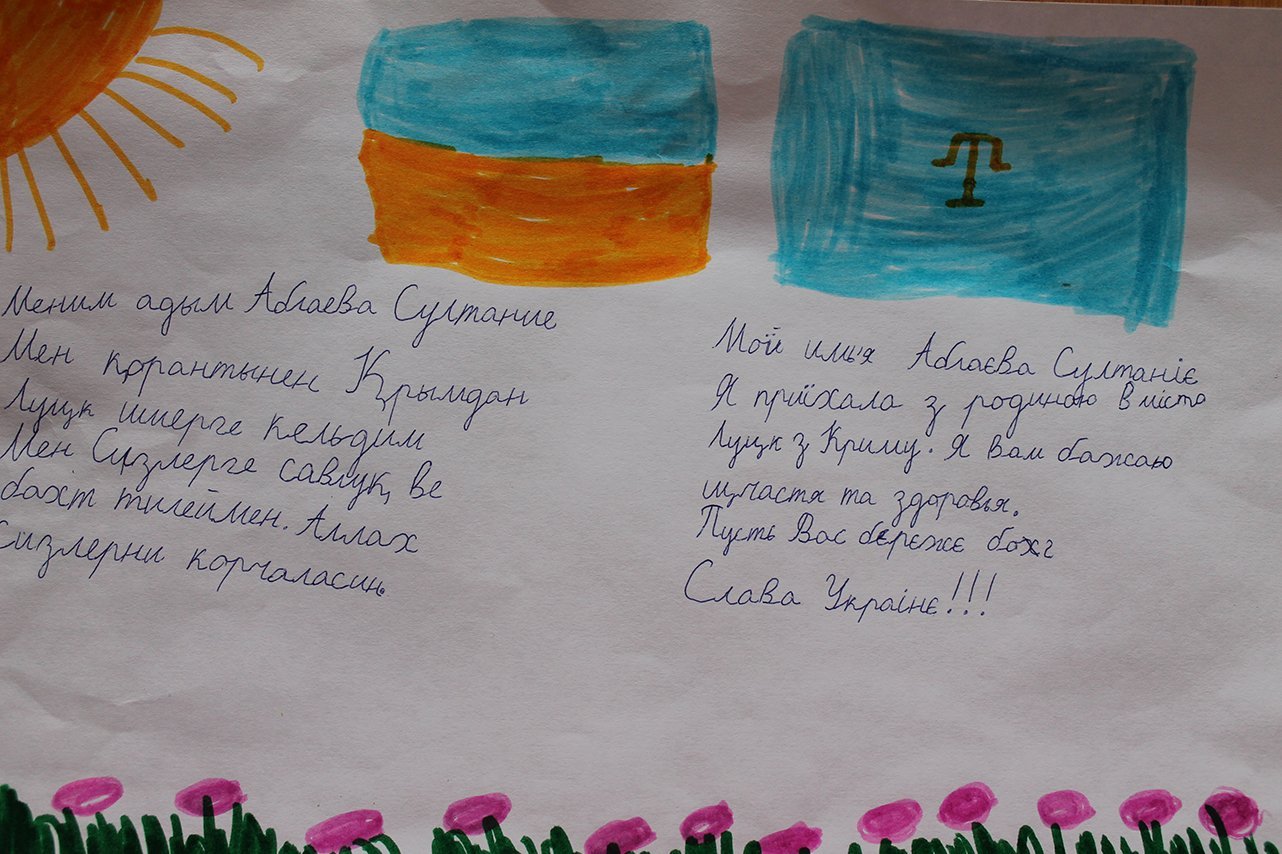 Меним адым Аблаева Султание
Мен қорантынен Қрымдан
Луцк шиерге кельдим
Мен Сизлерге савлуқ ве
бахт тилеймен. Аллах
Сизлерни корчаласин.
Мой имья Аблаєва Султаніє
Я приїхала з родиною в місто
Луцк з Криму. Я Вам бажаю
щчастя та здоровья.
Пусть Вас бережє бог
Слава Украінє!!!